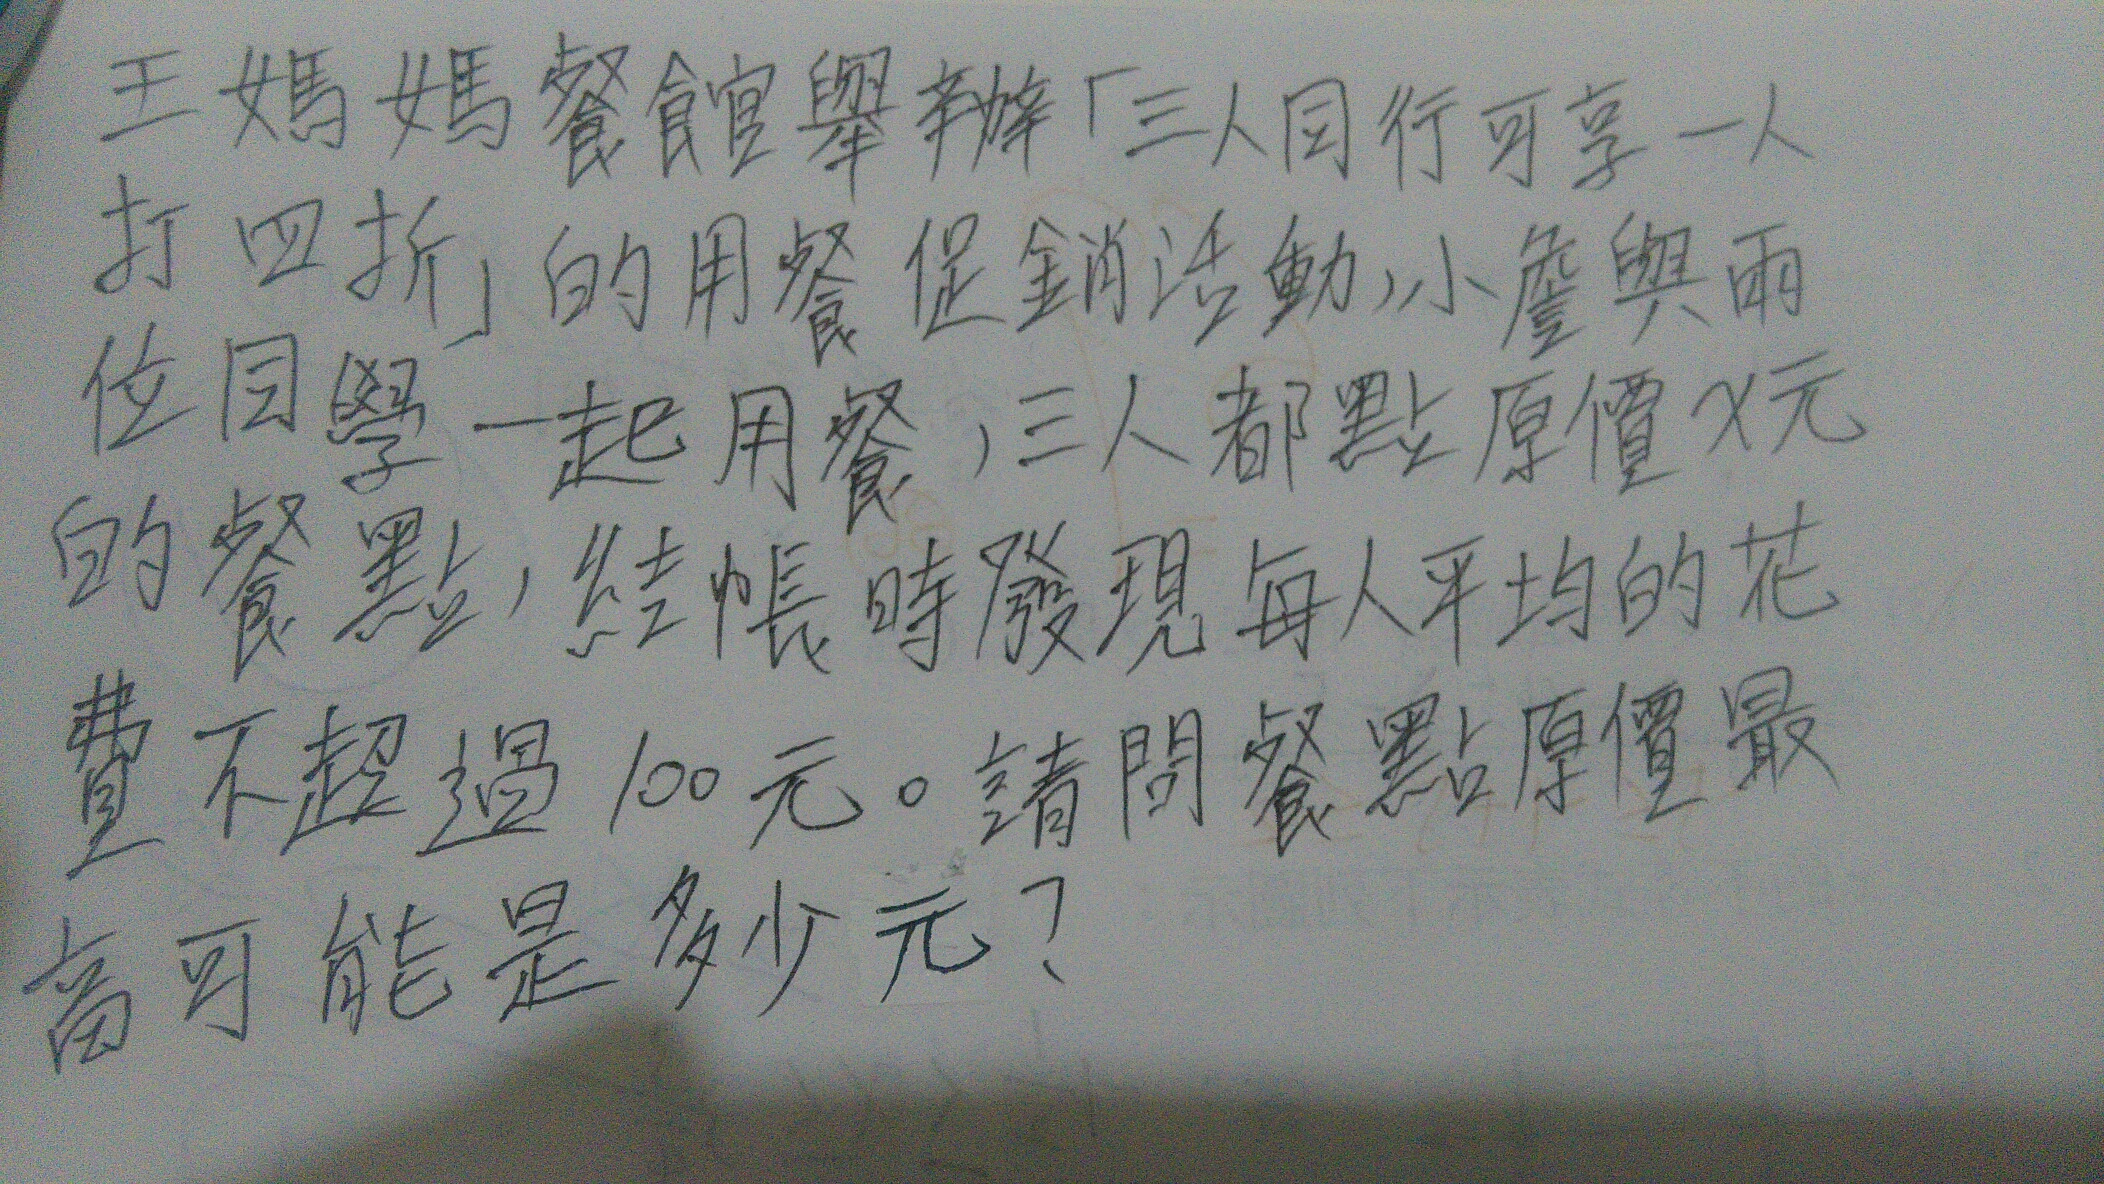 王媽媽餐館舉辦「三人同行可享一人
打四折」的用餐促銷活動,小詹與兩
位同學一起用餐,三人都點原價x元
的餐點,結帳時發現每人平均的花
費不超過100元。請問餐點原價最
高可能是多少元?